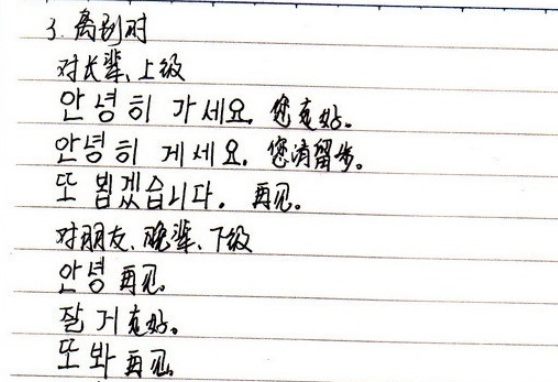 3. 离别时
对长辈、上级
안녕히 가세요. 您走好。
안녕히 계세요. 您请留步。
또 뵙겠습니다. 再见。
对朋友、晚辈、下级
안녕 再见.
잘 가 走好。
또 봐 再见.